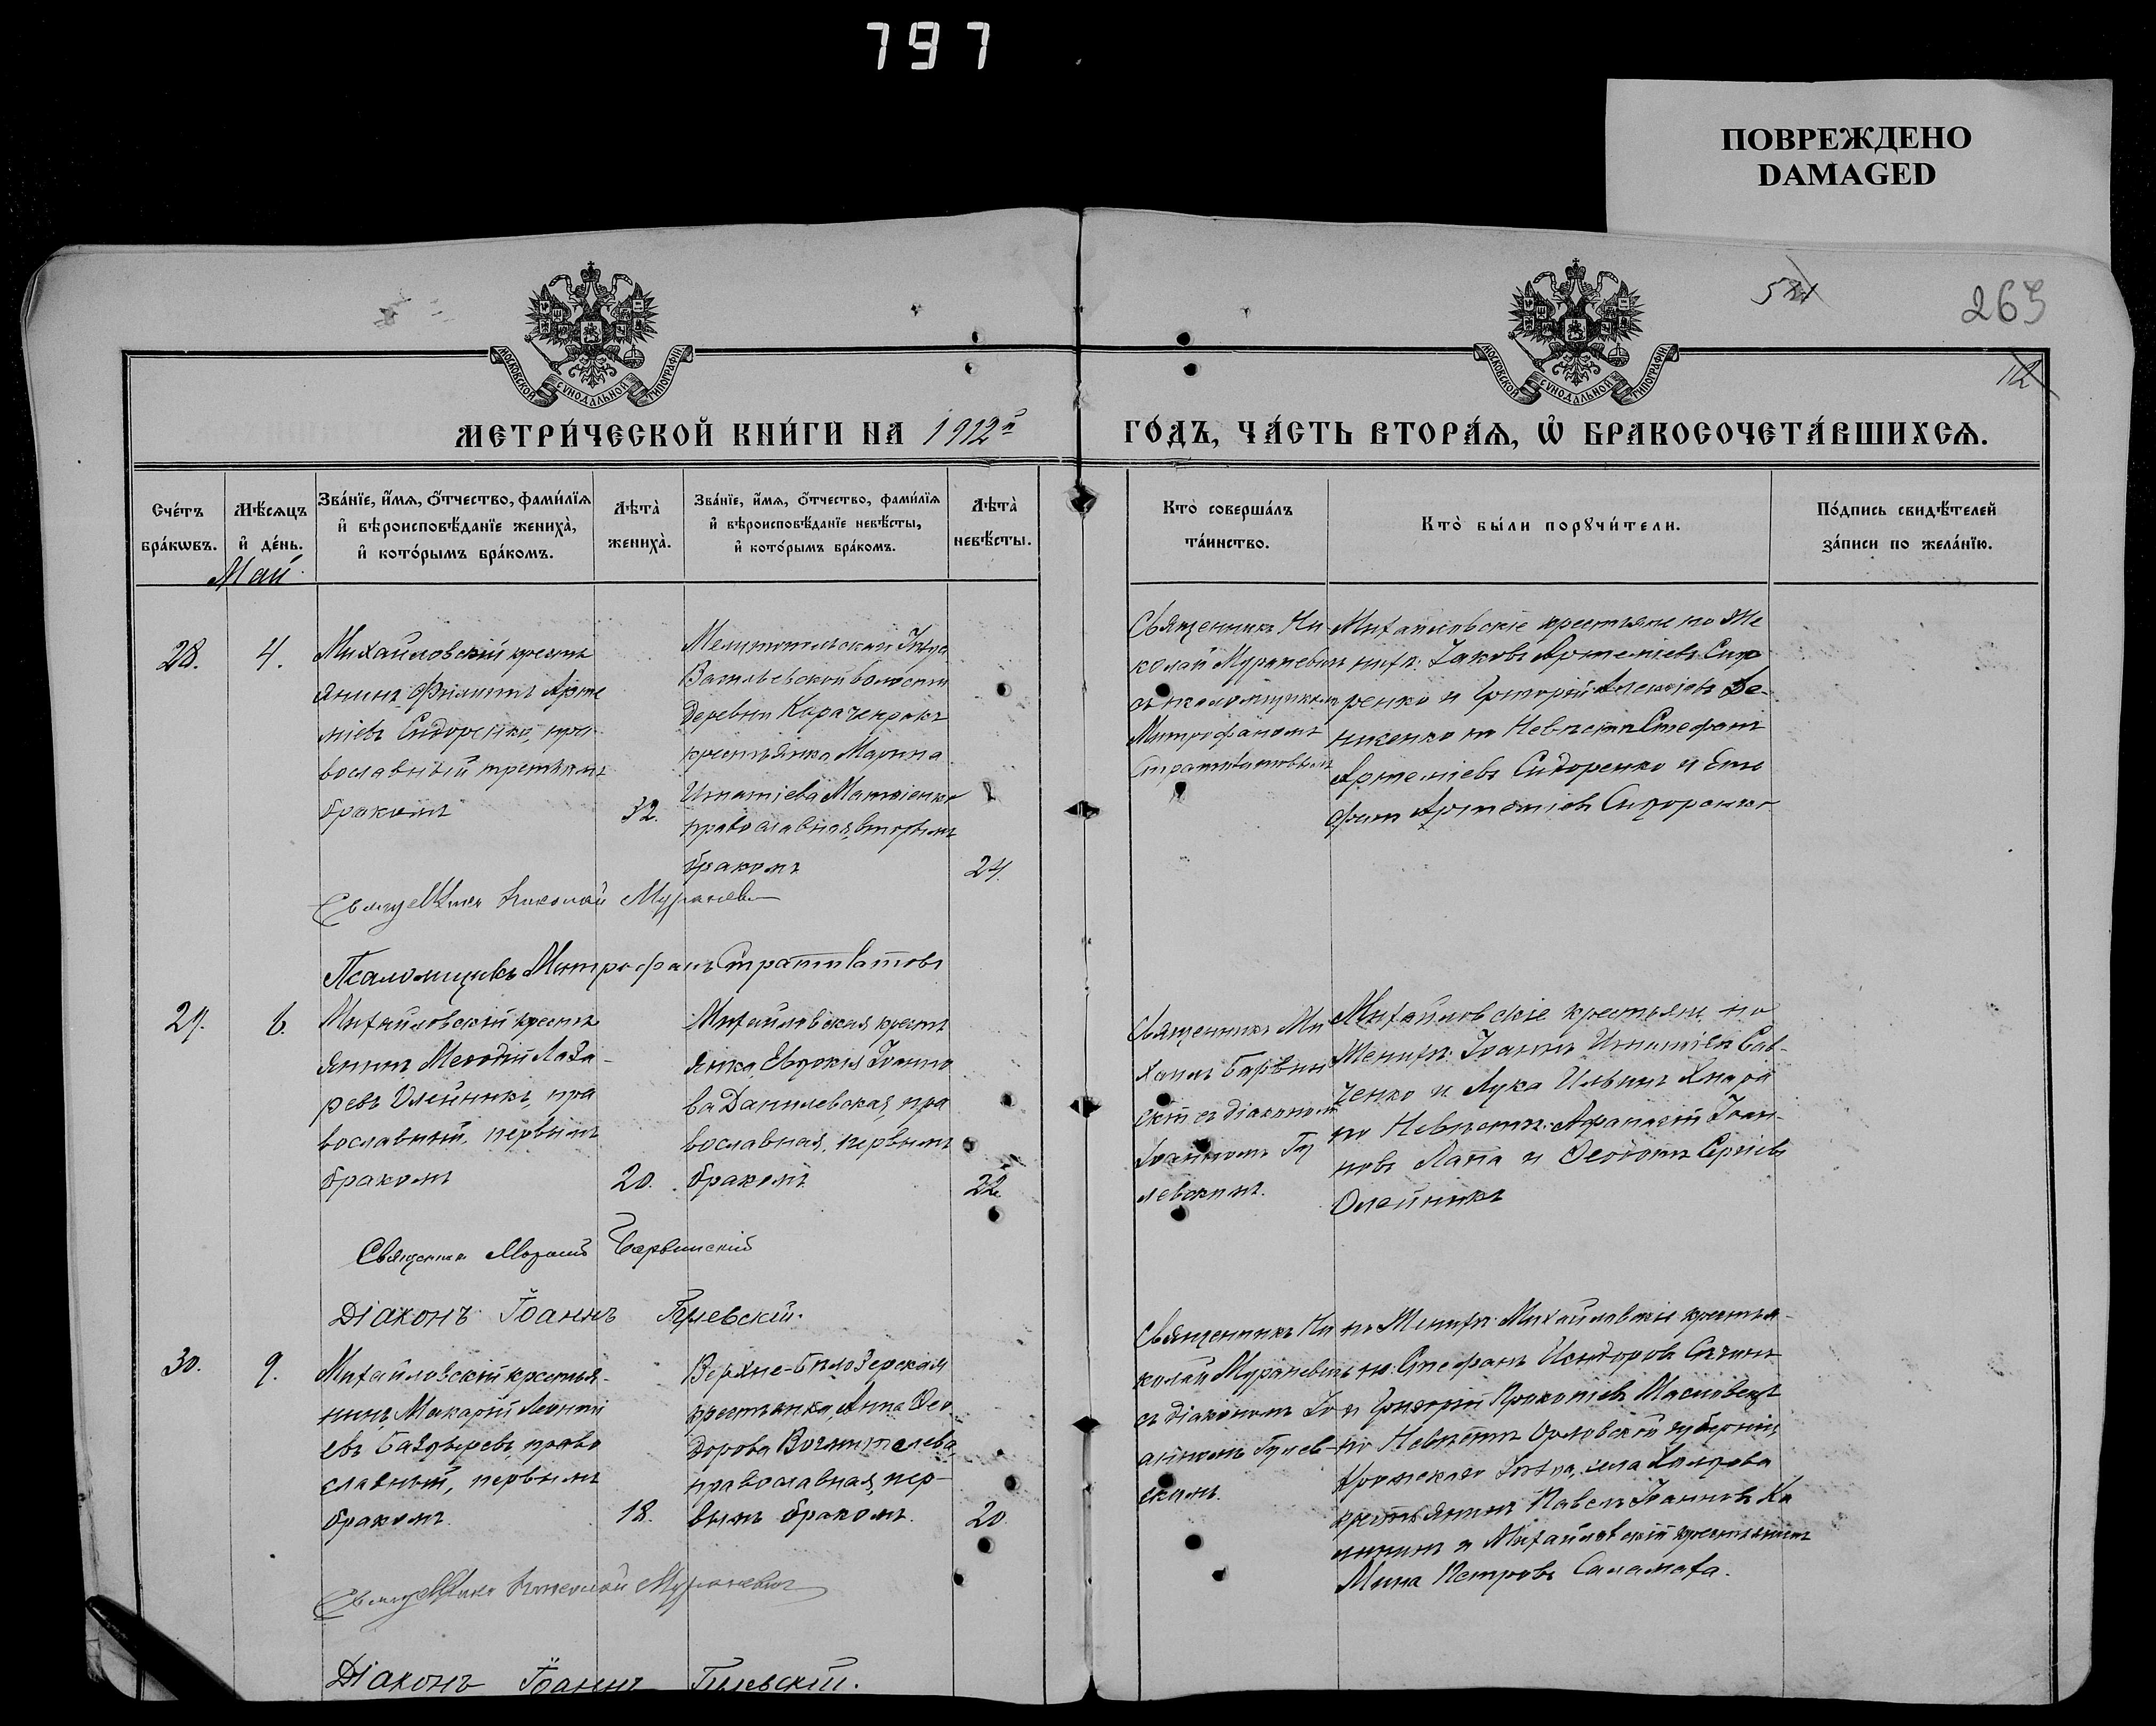 797
ПОВРЕЖДЕНО
DAMAGED
521
265
12
МОСКОВСКОЙ СѴНОДАЛЬНОЙ ТИПОГРАФІИ
МОСКОВСКОЙ СѴНОДАЛЬНОЙ ТИПОГРАФІИ
МЕТРИ́ЧЕСКОЙ КНИ́ГИ НА 1912й
ГО́ДЪ, ЧА́СТЬ ВТОРА́Ѧ, Ѡ҆ БРАКОСОЧЕТА́ВШИХСѦ.
Сче́тъ
бра́кѡвъ.
Мѣ́сѧцъ
и҆ де́нь.
Май.
Зва́нїе, и҆́мѧ, ѻ҆́тчество, фами́лїѧ
и҆ вѣроисповѣ́данїе жениха̀,
и҆ кото́рымъ бра́комъ.
Лѣта̀
жениха̀.
Зва́нїе, и҆́мѧ, ѻ҆́тчество, фами́лїѧ
и҆ вѣроисповѣ́данїе невѣ́сты,
и҆ кото́рымъ бра́комъ.
Лѣта̀
невѣ́сты.
Кто̀ соверша́лъ
та́инство.
Кто̀ бы́ли порꙋчи́тели.
По́дпись свидѣ́телей
за́писи по жела́нїю.
28.
4.
Михайловскій кресть
янинъ Филиппъ Арте
міевъ Сидоренко, пра
вославный третьимъ
бракомъ
32.
Мелитопольскаго Уѣзда
Васильевской волости
деревни Карачекракъ
крестьянка Марина
Игнатіева Матвіенко
православная, вторымъ
бракомъ
24.
Священникъ Ни
колай Мураневичъ
съ псаломщикомъ
Митрофаномъ
Стратилатовымъ
Михайловскіе крестьяне по Же
нихѣ: Іаковъ Артеміевъ Сидо
ренко и Григорій Алексіевъ
по Невѣстѣ Стефанъ
Артеміевъ Сидоренко и
Артеміевъ Сидоренко
Священникъ Николай Мураневичъ
Псаломщикъ Митрофанъ Стратилатовъ
29.
6.
Михайловскій кресть
янинъ Меѳодій Лаза-
ревъ Олейникъ, пра
вославный, первымъ
бракомъ
20.
Михайловская кресть
янка Евдокія Іоанно
ва Данилевская, пра
вославная, первымъ
бракомъ
22.
Священникъ Ми
хаилъ Барвин
скій съ діакономъ
Іоанномъ Гу
левскимъ.
Михайловскіе крестьяне по
Женихѣ: Іоаннъ Игнатіевъ Сав-
ченко и Лука Ильинъ
по Невѣстѣ: Аѳанасій Іоан-
новъ Лапа и Ѳеодотъ Сергіевъ
Олейникъ
Священникъ Михаилъ Барвинскій
Діаконъ Іоаннъ Гулевскій.
30.
9.
Михайловскій крестья-
нинъ, Макарій Леонті
евъ Баздыревъ, право
славный, первымъ
бракомъ.
18.
Верхне-Бѣлозерская
крестьянка, Анна Ѳео
дорова
православная, пер-
вымъ бракомъ.
20.
Священникъ Ни
колай Мураневичъ
съ діакономъ Іо
анномъ Гулев-
скимъ.
по Женихѣ: Михайловскіе крестья-
не: Стефанъ Исидоровъ
и Григорій Прокопіевъ Масловецъ
по Невѣстѣ Орловской губерніи,
Уѣзда, села
крестьянинъ Павелъ Іоанновъ Ка
лининъ и Михайловскій крестьянинъ
Мина Петровъ Саламаха.
Священникъ Николай Мураневичъ
Діаконъ Іоаннъ Гулевскій.